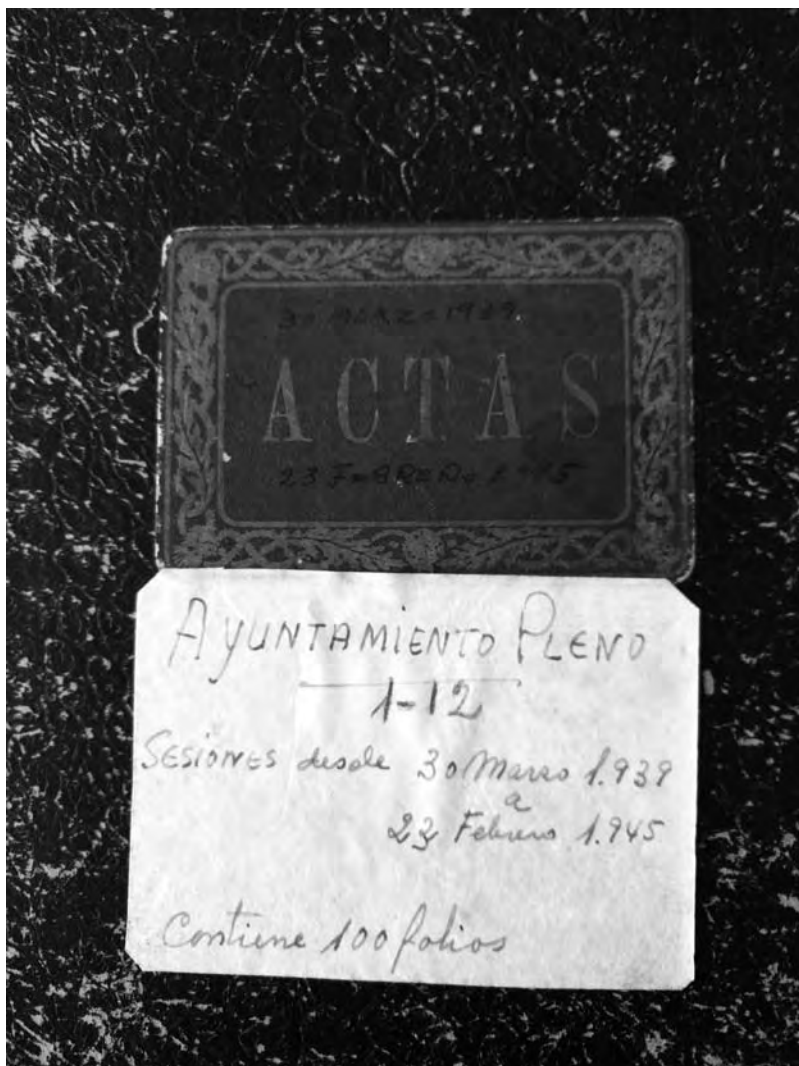 30 MARZO 1939
ACTAS
23 FEBRERO 1945
AYUNTAMIENTO PLENO
1-12
SESIONES desde 30 Marzo 1.939
a
23 Febrero 1.945
Contiene 100 folios